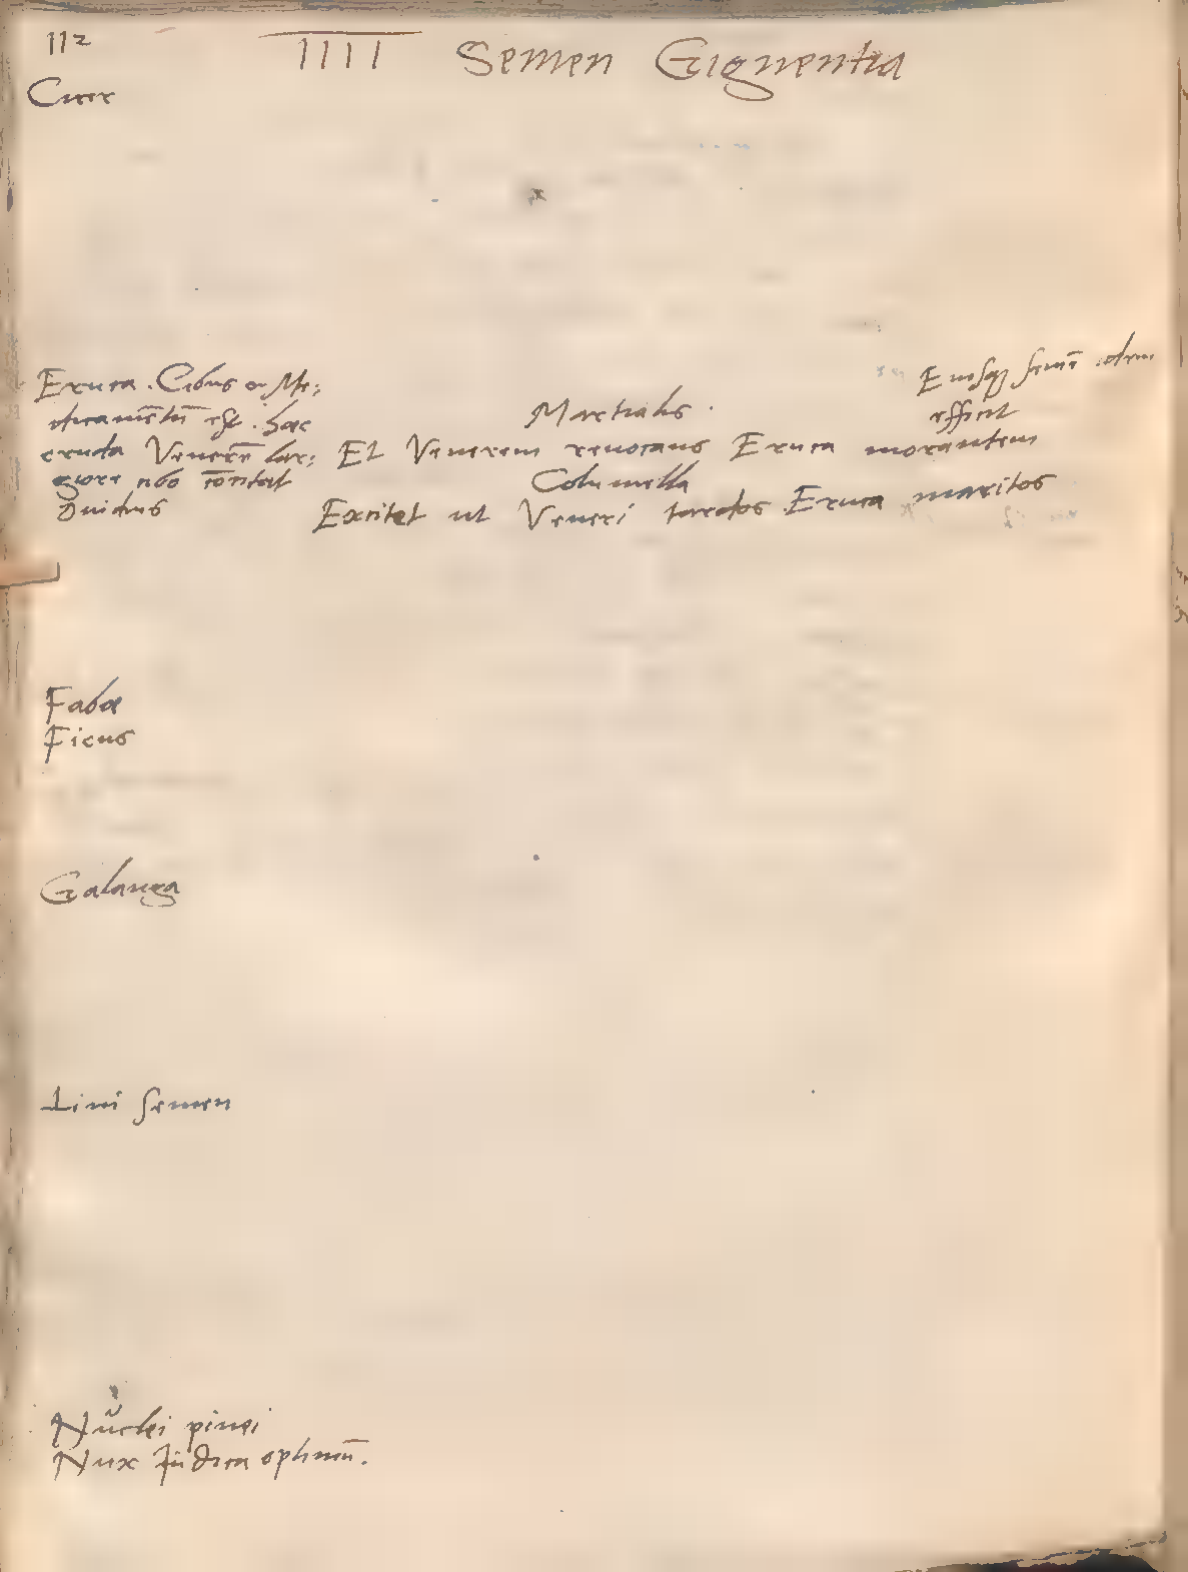 112 IIII Semen Gignentia
Cicer
Eruca . Cibus & Me:
dicamētū est . haec
cruda Venerē lar:
giore cibo cōcitat
Ovidius
Martialis .
Et Venerem revocans Eruca morantem
Columella
Excitet ut Veneri tardos Eruca maritos
Eiusq semē idem
efficit
Fabae
Ficus
Galanga
Lini semen
Nuclei pinei
Nux Indica optimū.